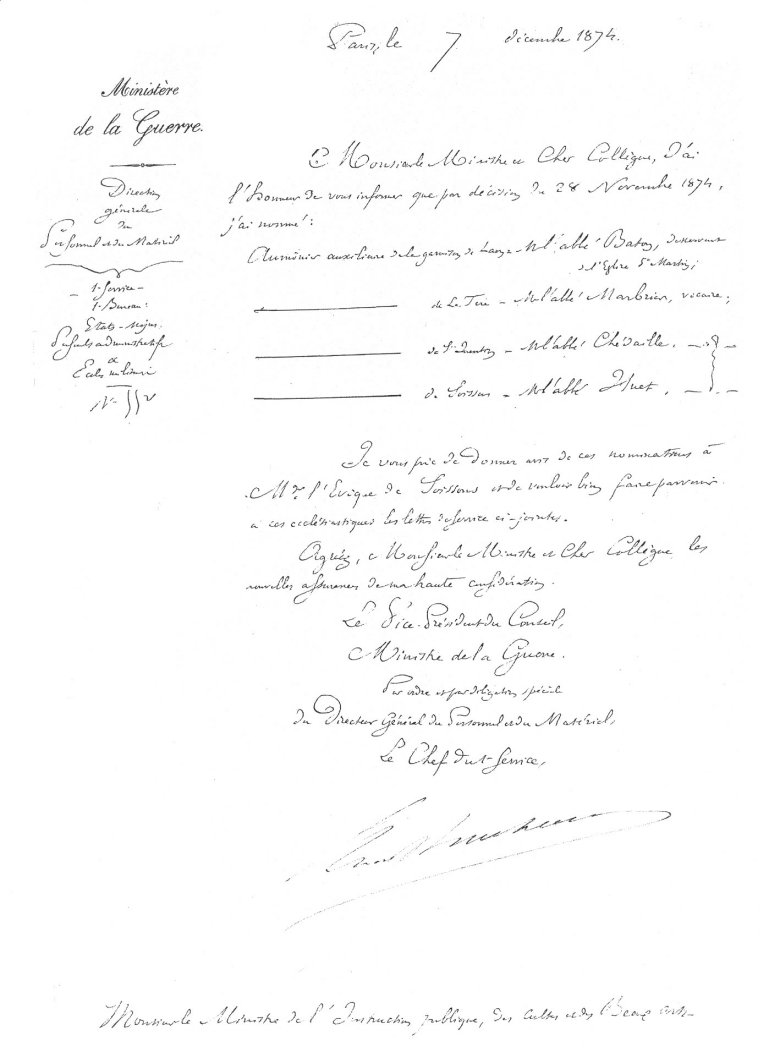 Paris, le 7 décembre 1874.
Ministère
de la Guerre.
Direction
générale
du
Personnel et du Matériel
1er Service
1er Bureau:
Etats-Major
Personnels administratifs
et
Ecoles militaires
Monsieur le Ministre et Cher Collègue, J'ai
l'honneur de vous informer que par décision du 28 Novembre 1874,
j'ai nommé:
Aumônier auxiliaire de la garnison de Laon - M. l'abbé Baton, desservant
de l'Eglise St Martin;
de La Fère - M. l'abbé Marbrier, vicaire;
de St Quentin - M. l'abbé Chédaille,
de Soissons - M. l'abbé Huet,
Je vous prie de donner avis de ces nominations à
Mgr l'Evêque de Soissons et de vouloir bien faire parvenir
à ces ecclésiastiques les lettres de service ci-jointes.
Agréez, Monsieur le Ministre et Cher Collègue les
nouvelles assurances de ma haute considération.
Le Vice-Président du Conseil,
Ministre de la Guerre.
Par ordre et par délégation spéciale
du Directeur Général du Personnel et du Matériel,
Le Chef du 1er Service,
Monsieur le Ministre de l'Instruction publique, des Cultes et des Beaux arts